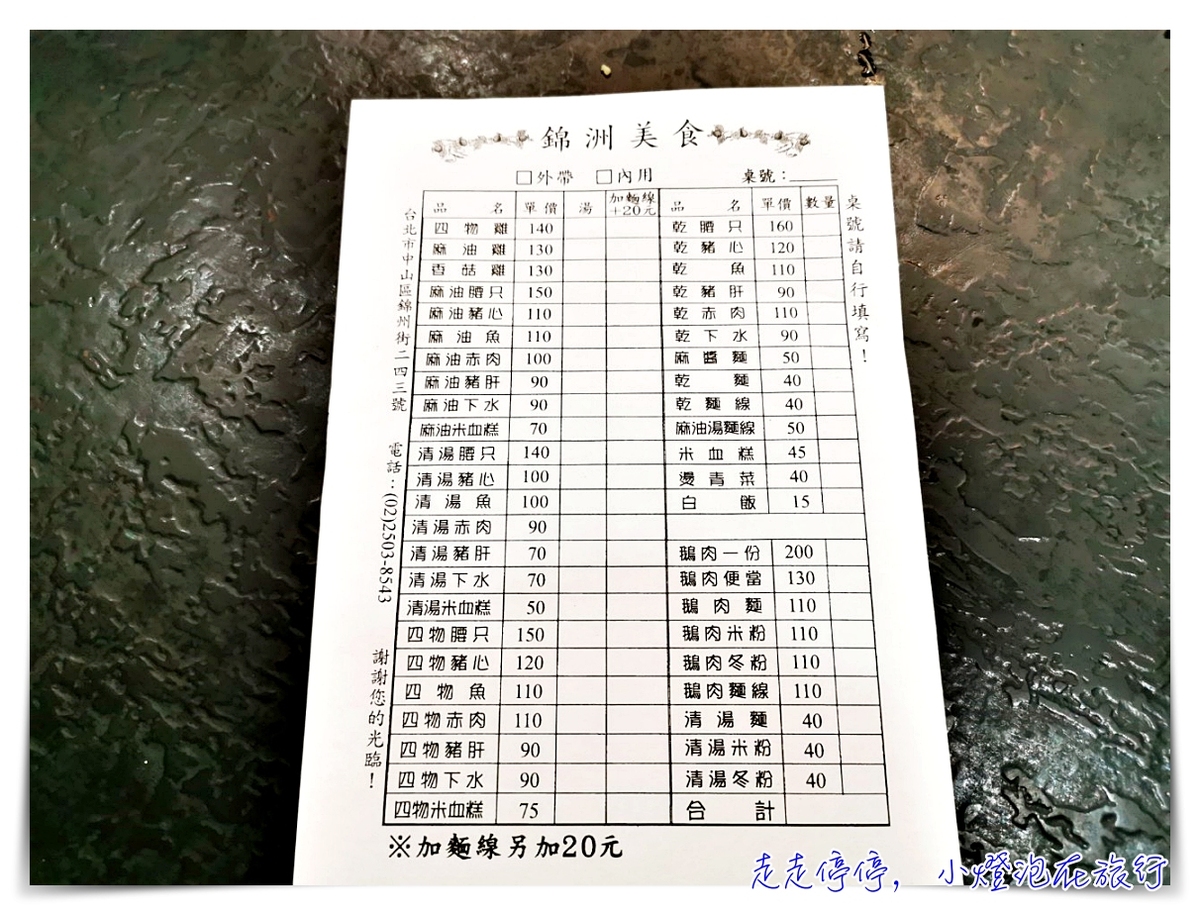 錦洲美食
□外帶 □內用 桌號：
品名 單價 湯 加麵線+20元 品名 單價 數量
四物雞 140 乾腰只 160
麻油雞 130 乾豬心 120
香菇雞 130 乾魚 110
麻油腰只 150 乾豬肝 90
麻油豬心 110 乾赤肉 110
麻油魚 110 乾下水 90
麻油赤肉 100 麻醬麵 50
麻油豬肝 90 乾麵 40
麻油下水 90 乾麵線 40
麻油米血糕 70 麻油湯麵線 50
清湯腰只 140 米血糕 45
清湯豬心 100 燙青菜 40
清湯魚 100 白飯 15
清湯赤肉 90
清湯豬肝 70 鵝肉一份 200
清湯下水 70 鵝肉便當 130
清湯米血糕 50 鵝肉麵 110
四物腰只 150 鵝肉米粉 110
四物豬心 120 鵝肉冬粉 110
四物魚 110 鵝肉麵線 110
四物赤肉 110 清湯麵 40
四物豬肝 90 清湯米粉 40
四物下水 90 清湯冬粉 40
四物米血糕 75 合計
※加麵線另加20元
台北市中山區錦州街二四三號
電話：(02)2503-8543
謝謝您的光臨！
桌號請自行填寫！
走走停停，小燈泡在旅行